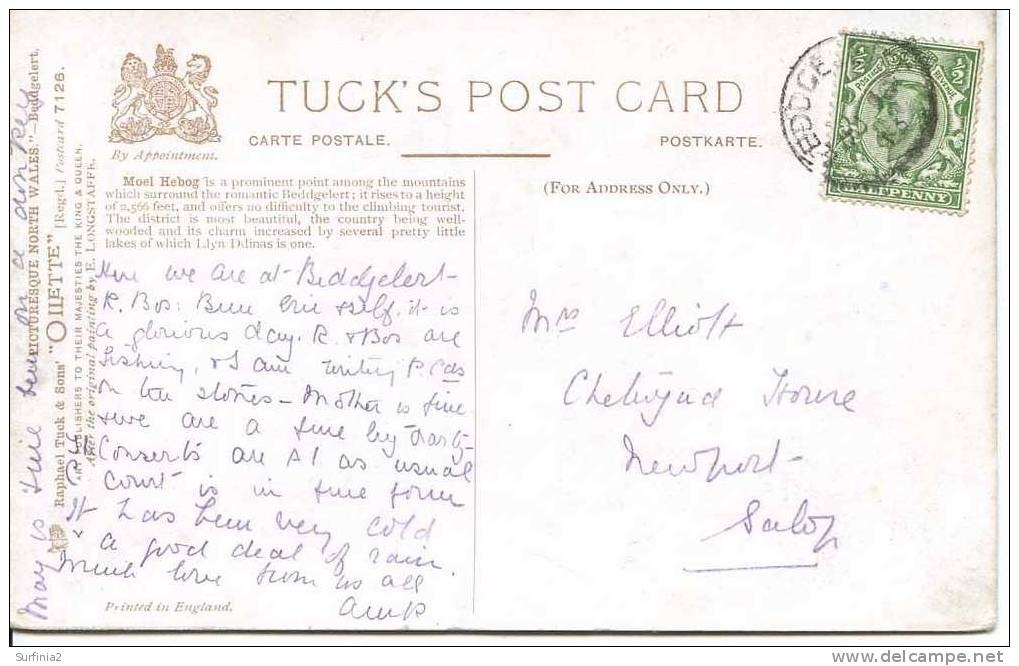 TUCK'S POST CARD
CARTE POSTALE.
POSTKARTE.
By Appointment.
(For Address Only.)
Moel Hebog is a prominent point among the mountains
which surround the romantic Beddgelert; it rises to a height
of 2,566 feet, and offers no difficulty to the climbing tourist.
The district is most beautiful, the country being well-
wooded and its charm increased by several pretty little
lakes of which Llyn Ddinas is one.
Here we are at Beddgelert
R. Bos: Bun Eric & self. it is
a glorious day. R. & Bos are
fishing, & I am writing P. Cds
on the stones – Mother is fine
& we are a fine big party
Concerts are A1 as usual
Court is in fine form
It has been very cold
& a good deal of rain.
Much love from us all
May is fine been on a donkey
Printed in England.
Raphael Tuck & Sons' "OILETTE" [Regd.] Postcard 7126.
"PICTURESQUE NORTH WALES."—Beddgelert.
ART PUBLISHERS TO THEIR MAJESTIES THE KING & QUEEN.
After the original painting by E. LONGSTAFFE.
Mrs Elliott
Chetwynd House
Newport
Salop
½
½
POSTAGE
REVENUE
PENNY
BEDDGE
Surfinia2
www.delcampe.net